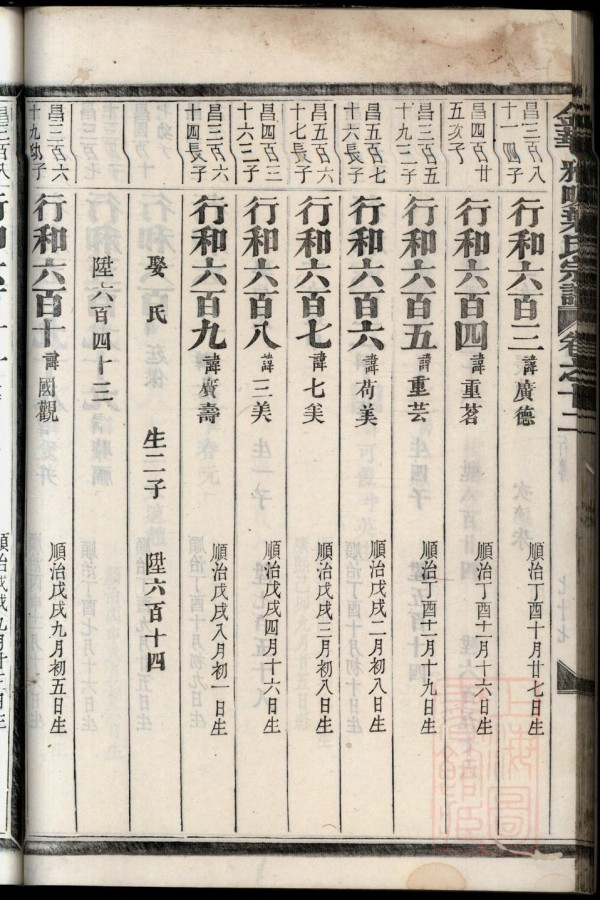 金華雅畈葉氏宗譜 卷之十二
昌三百八
十一四子
行和六百三 諱廣德 順治丁酉十月廿七日生
昌四百廿
五次子
行和六百四 諱重茗 順治丁酉十一月十六日生
昌三百五
十九三子
行和六百五 諱重芸 順治丁酉十二月十九日生
昌五百七
十六長子
行和六百六 諱荷美 順治戊戌二月初八日生
昌五百六
十七長子
行和六百七 諱七美 順治戊戌三月初八日生
昌四百三
十六三子
行和六百八 諱三美 順治戊戌四月十六日生
昌三百六
十四長子
行和六百九 諱廣壽 順治戊戌八月初一日生
娶氏 生二子 陞六百十四
陞六百四十三
昌三百六
十九幼子
行和六百十 諱國觀 順治戊戌九月初五日生